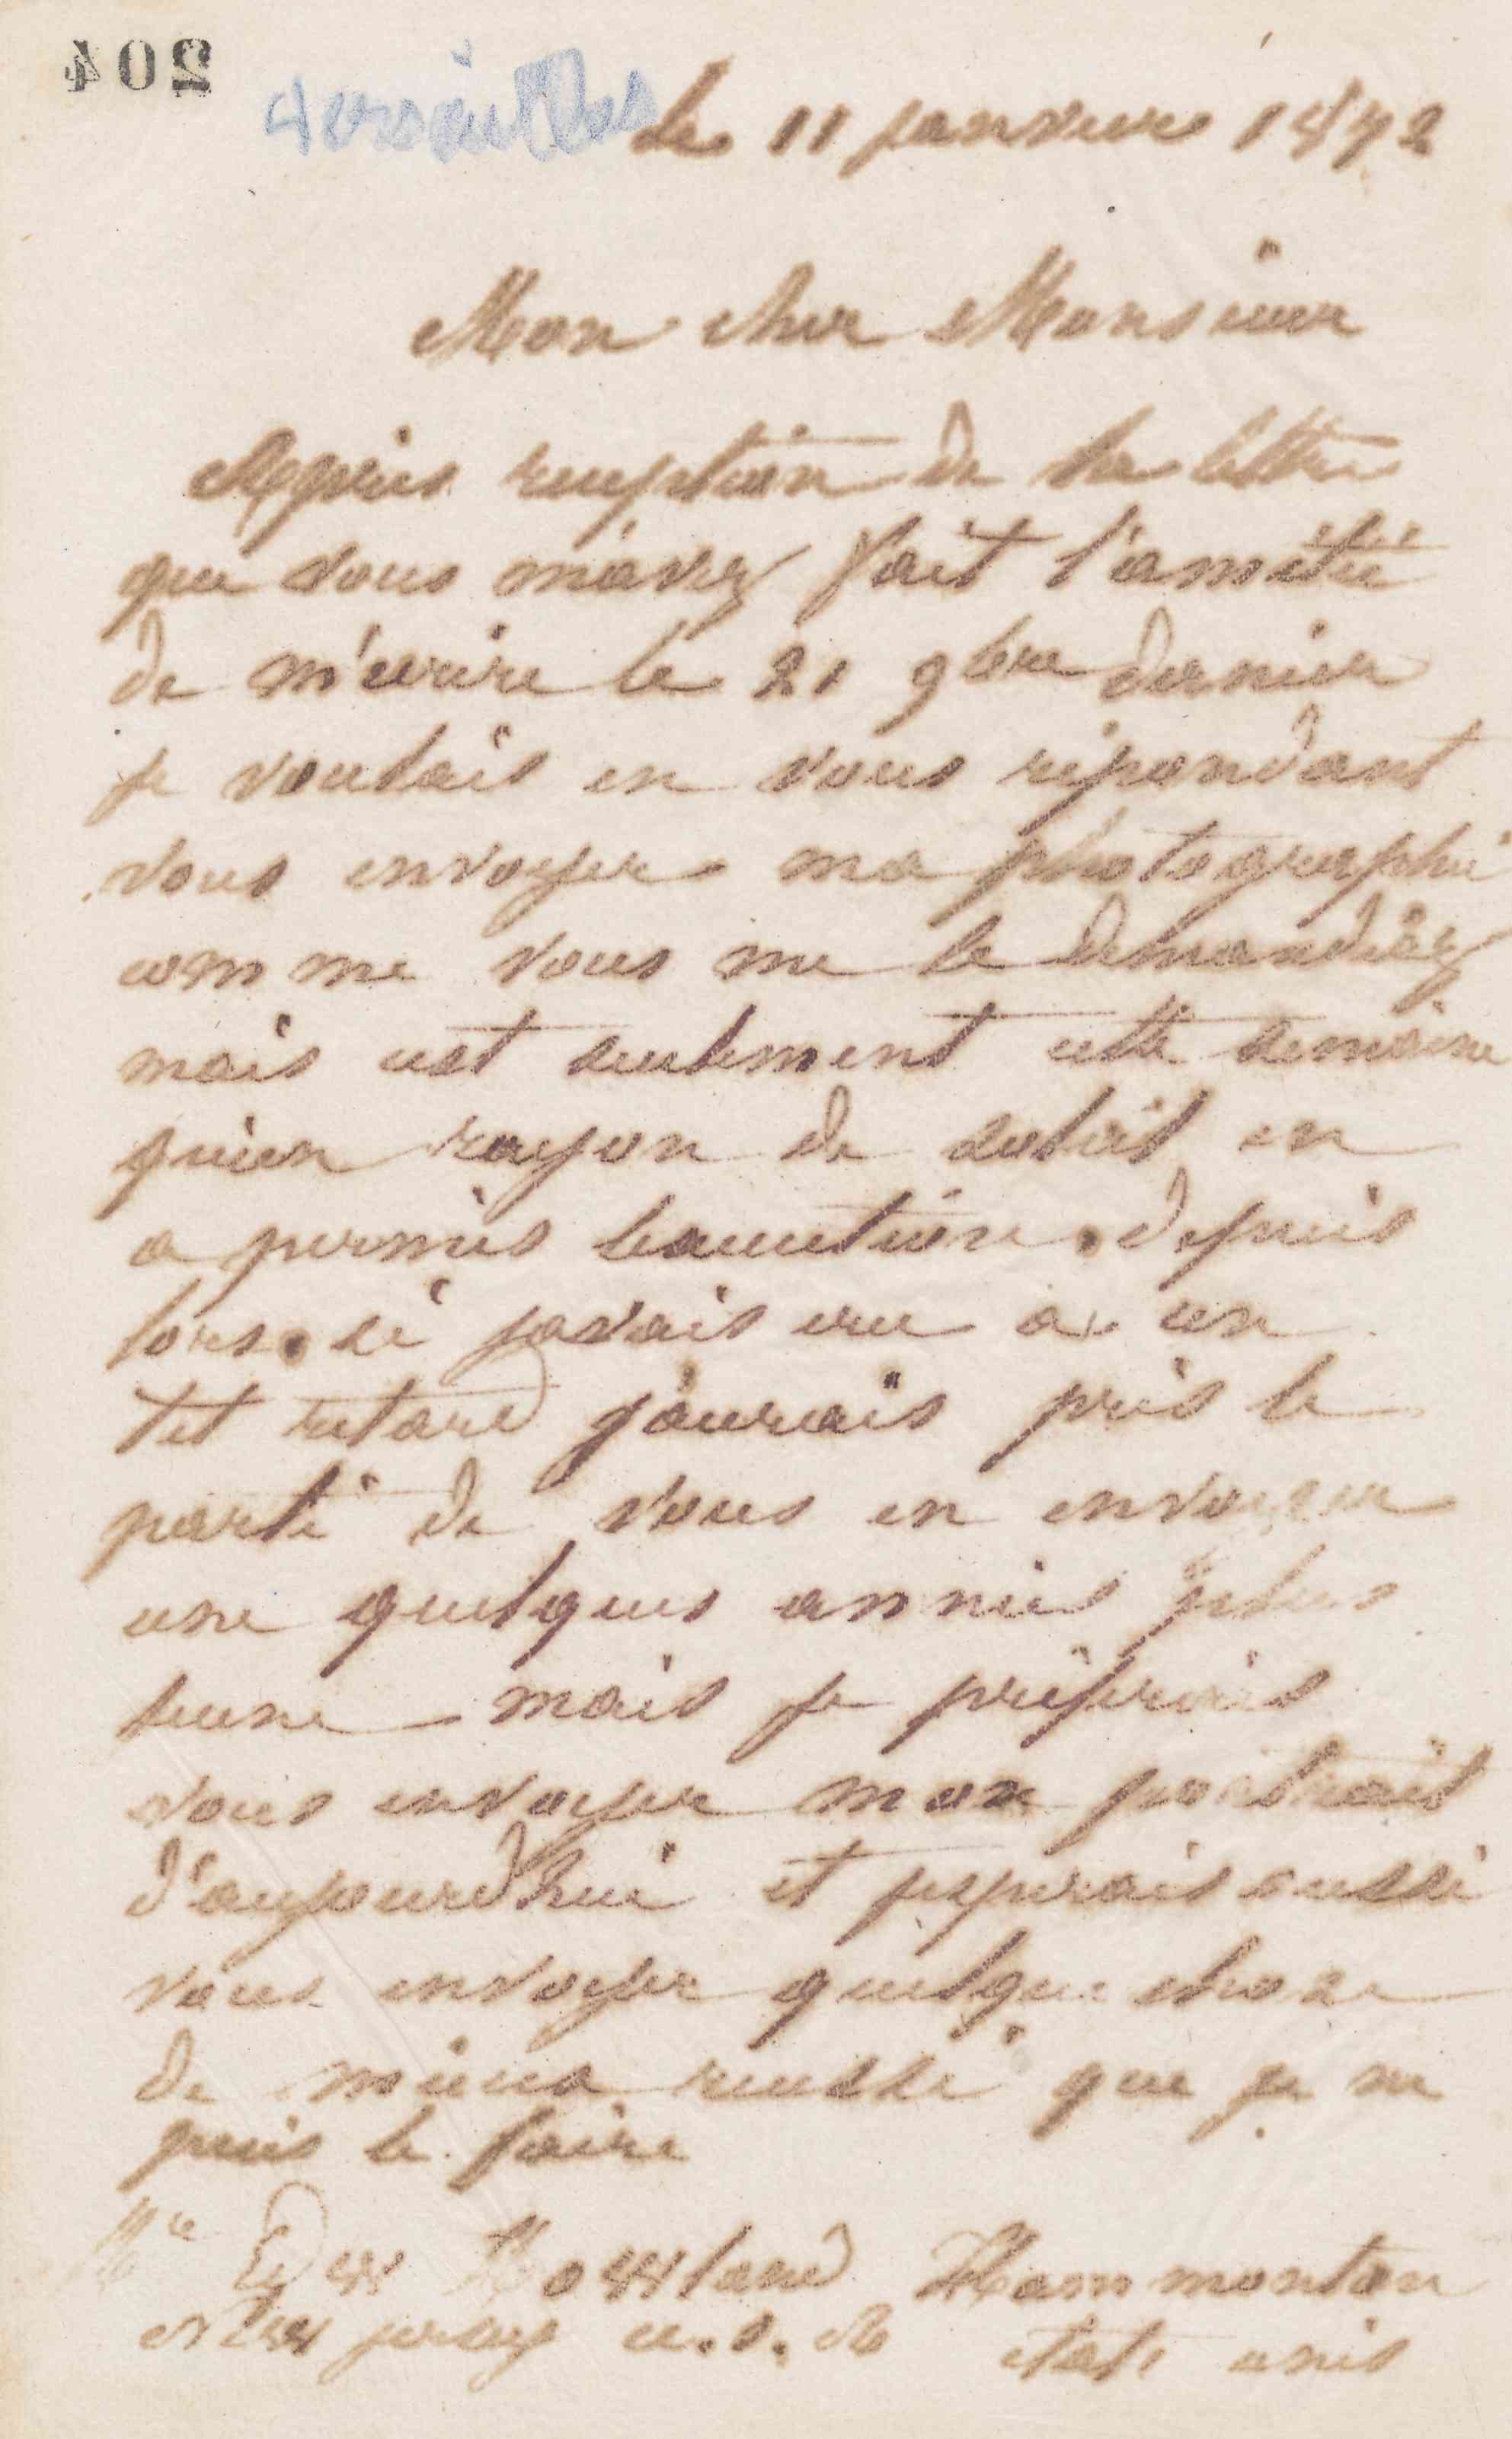 204
Versailles le 11 janvier 1872
Mon cher Monsieur
Après reception de la lettre
que vous m'avez fait l'amitié
de m'ecrire le 21 9bre dernier
je voulais en vous répondant
vous envoyer ma photographie
comme vous me le demandiez
mais cest seulement cette semaine
qu'un rayon de soleil en
a permis lexecution. depuis
lors. si javais cru a un
tel retard j'aurais pris le
parti de vous en envoyer
une quelques années plus
jeune mais je préferais
vous envoyer mon portrait
d'aujourd'hui et jesperais aussi
vous envoyer quelque chose
de mieux reussi que je ne
puis le faire
Mr Edw Howland Hammonton
New jersey u.s. etats unis